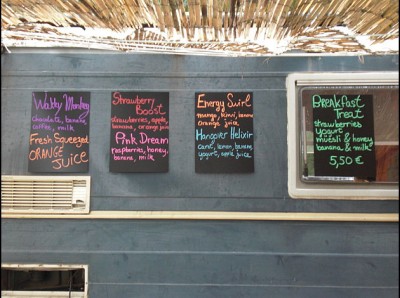 Wabby Monkey
chocolate, banana,
coffee, milk
Fresh Squeezed
ORANGE
JUICE
Strawberry
Boost
strawberries, apple,
banana, orange juice
Pink Dream
raspberries, honey,
banana, milk
Energy Swirl
mango, kiwi, banana
orange juice
Hangover Helixir
carrot, lemon, banana,
yogurt, apple juice
BREAKFAST
TREAT
strawberries
yogurt
muesli & honey
banana & milk
5,50 €